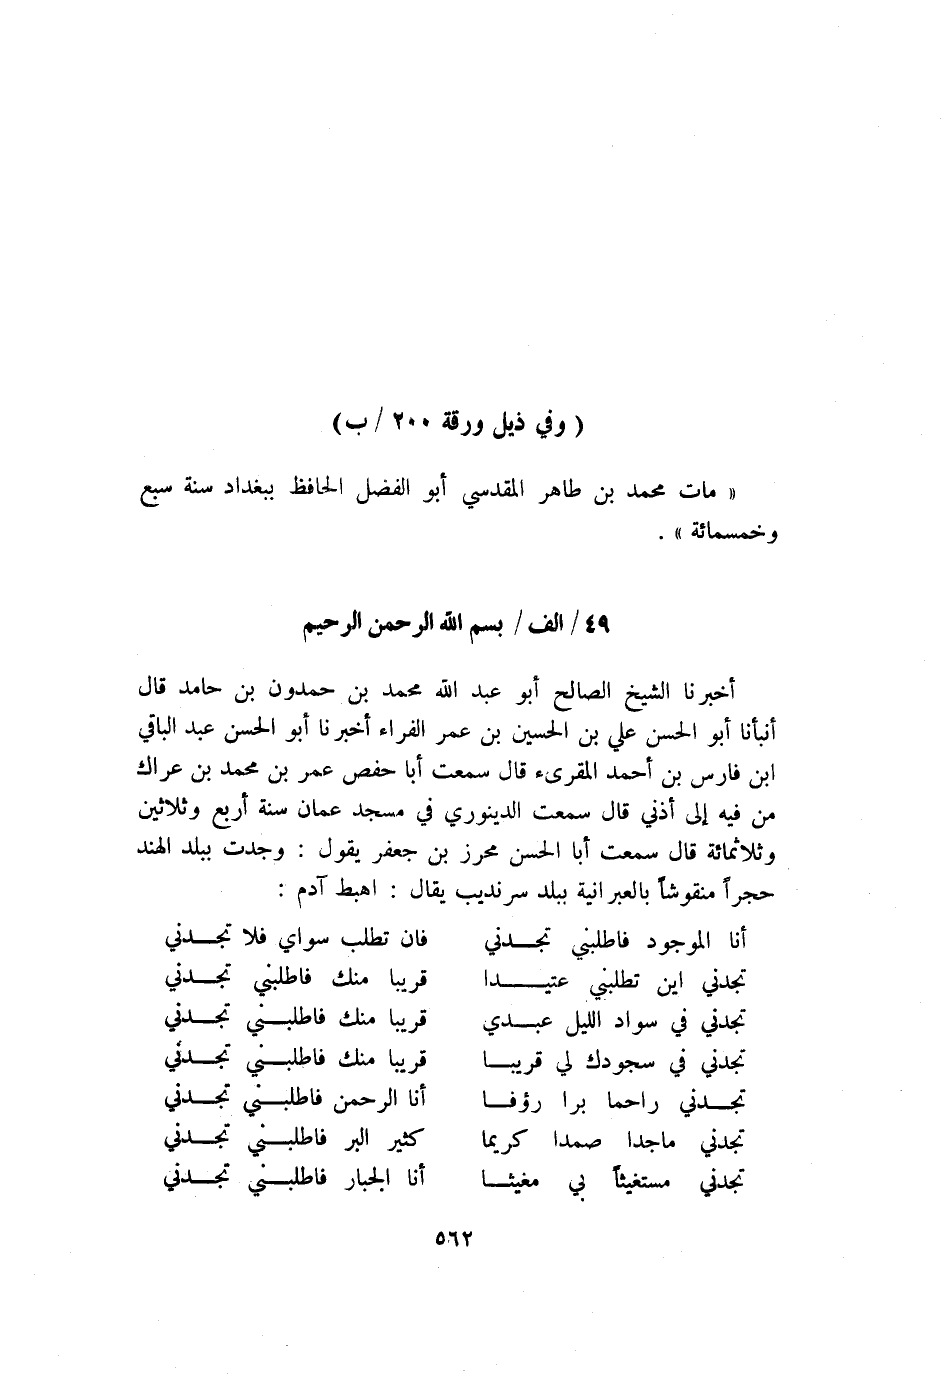 ( وفي ذيل ورقة ٢٠٠ / ب )
« مات محمد بن طاهر المقدسي أبو الفضل الحافظ ببغداد سنة سبع
وخمسمائة » .
٤٩ / الف / بسم الله الرحمن الرحيم
أخبرنا الشيخ الصالح أبو عبد الله محمد بن حمدون بن حامد قال
أنبأنا أبو الحسن علي بن الحسين بن عمر الفراء أخبرنا أبو الحسن عبد الباقي
ابن فارس بن أحمد المقرىء قال سمعت أبا حفص عمر بن محمد بن عراك
من فيه إلى أذني قال سمعت الدينوري في مسجد عمان سنة أربع وثلاثين
وثلاثمائة قال سمعت أبا الحسن محرز بن جعفر يقول : وجدت ببلد الهند
حجراً منقوشاً بالعبرانية ببلد سرنديب يقال : اهبط آدم :
أنا الموجود فاطلبني تجـــدني فان تطلب سواي فلا تجـــدني
تجدني اين تطلبني عتيــــــدا قريبا منك فاطلبني تجـــدني
تجدني في سواد الليل عبـــدي قريبا منك فاطلبـــني تجـــدني
تجدني في سجودك لي قريبـــا قريبا منك فاطلبـــني تجـــدني
تجـــدني راحما برا رؤفـــا أنا الرحمن فاطلبـــني تجـــدني
تجدني ماجدا صمدا كريما كثير البر فاطلبـــني تجـــدني
تجدني مستغيثاً بي مغيثـــا أنا الجبار فاطلبـــني تجـــدني
٥٦٢